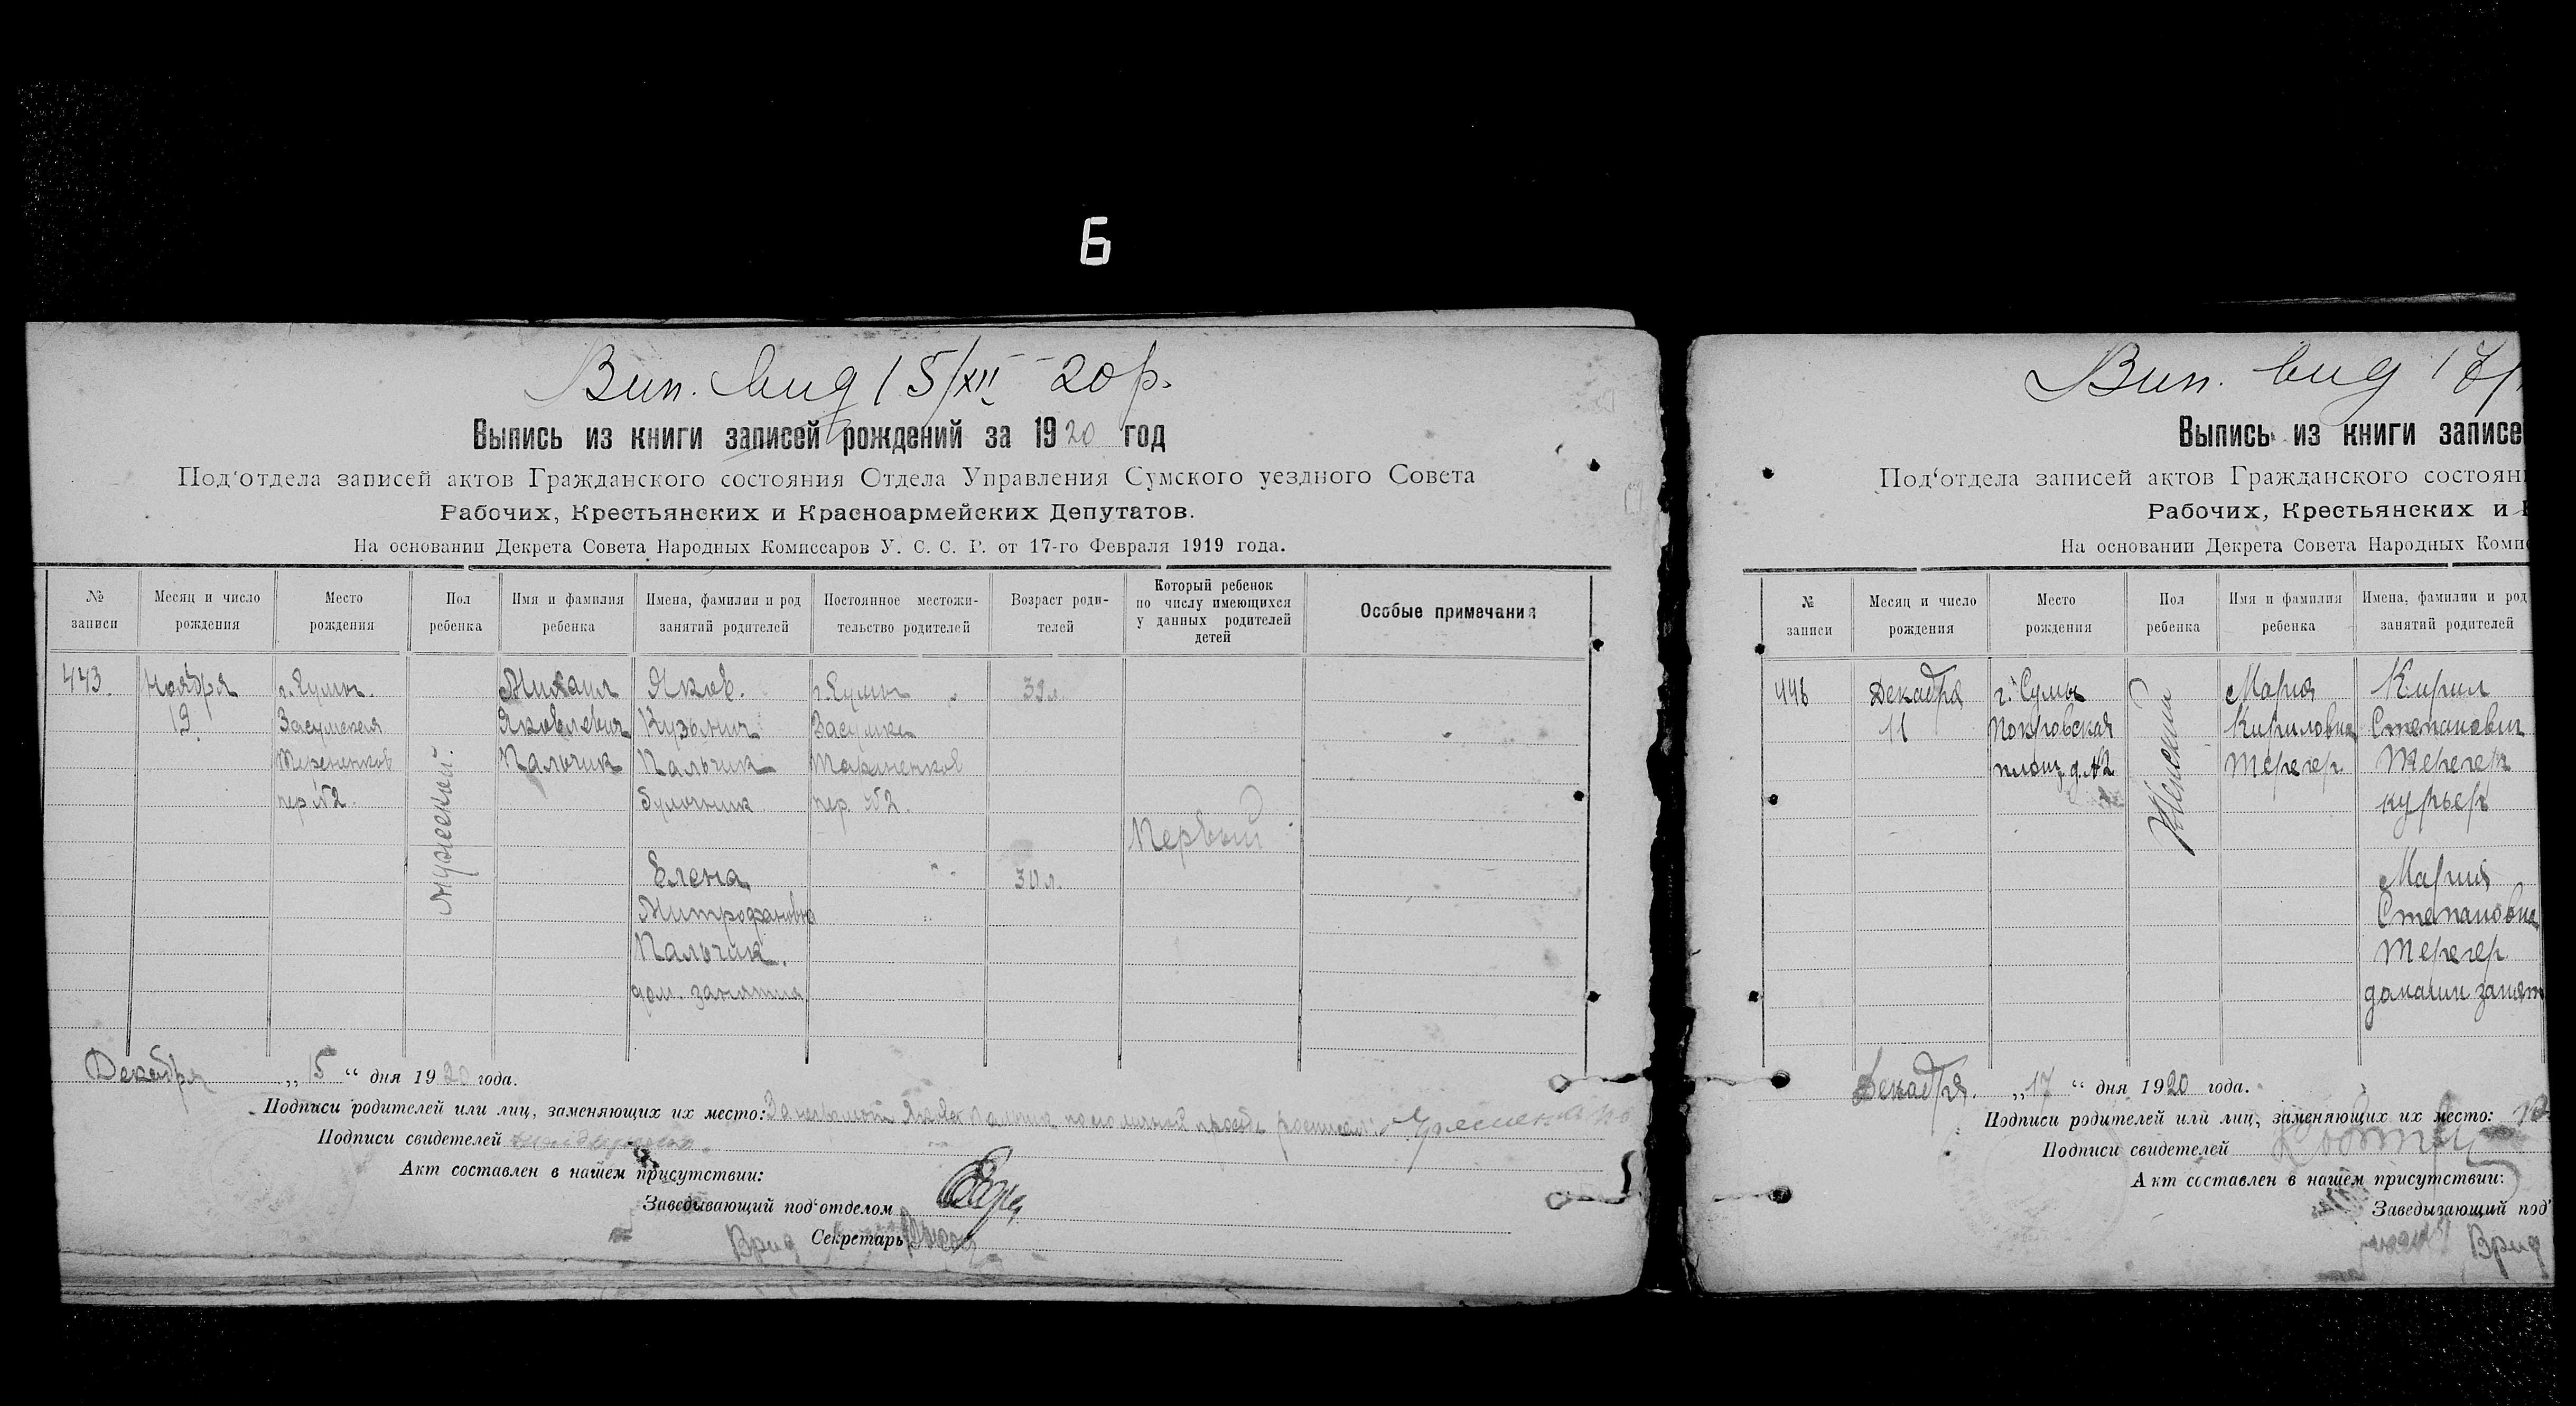 Б
Вип. вид 15/XII 20 р.
Выпись из книги записей рождений за 1920 год
Под‘отдела записей актов Гражданского состояния Отдела Управления Сумского уездного Совета
Рабочих, Крестьянских и Красноармейских Депутатов.
На основании Декрета Совета Народных Комиссаров У. С. С. Р. от 17-го Февраля 1919 года.
№ записи
Месяц и число рождения
Место рождения
Пол ребенка
Имя и фамилия ребенка
Имена, фамилии и род занятий родителей
Постоянное местожительство родителей
Возраст родителей
Который ребенок по числу имеющихся у данных родителей детей
Особые примечания
443. Ноября г. Сумы. Михаил Яков. г. Сумы
19 Засумская Яковлевич Кузьмич Засумка
Пальчик Пальчик
пер. №2 булочник пер. №2.
Мужеский.
Первый
Елена 30 л.
Митрофановна
Пальчик.
дом. занятия
Декабря „15“ дня 1920 года.
Подписи родителей или лиц, заменяющих их место:
Подписи свидетелей
Акт составлен в нашем присутствии:
Заведывающий под‘отделом
Врид Секретарь
Вип. вид 17/
Выпись из книги записе
Под‘отдела записей актов Гражданского состоян
Рабочих, Крестьянских и К
На основании Декрета Совета Народных Коми
№ записи
Месяц и число рождения
Место рождения
Пол ребенка
Имя и фамилия ребенка
Имена, фамилии и род занятий родителей
446 Декабря г. Сумы Мария Кирил
11 Покровская Кириловна Степанович
площ. д. №2 Терегер Терегер
курьер
Женский
Мария
Степановна
Терегер
домашн. занят
Декабря. „17“ дня 1920 года.
Подписи родителей или лиц, заменяющих их место:
Подписи свидетелей
Акт составлен в нашем присутствии:
Заведывающий под‘
Врид